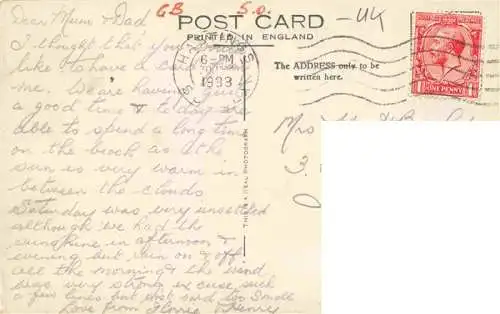 Dear Mum & Dad
I thought that you would
like to have a
me. We are having quite
a good time & to day are
able to spend a long time
on the beach as the
sun is very warm in
between the clouds.
Saturday was very unsettled
although we had the
sunshine in afternoon &
evening but rain on & off
all the morning & the wind
was very strong excuse such
a few lines but post card too small
Love from Florrie & Henry
G.B. S.O. -UK
POST CARD
PRINTED IN ENGLAND
The ADDRESS only to be
written here.
6-PM
1933
ONE PENNY
THIS IS A REAL PHOTOGRAPH
Mrs
3.